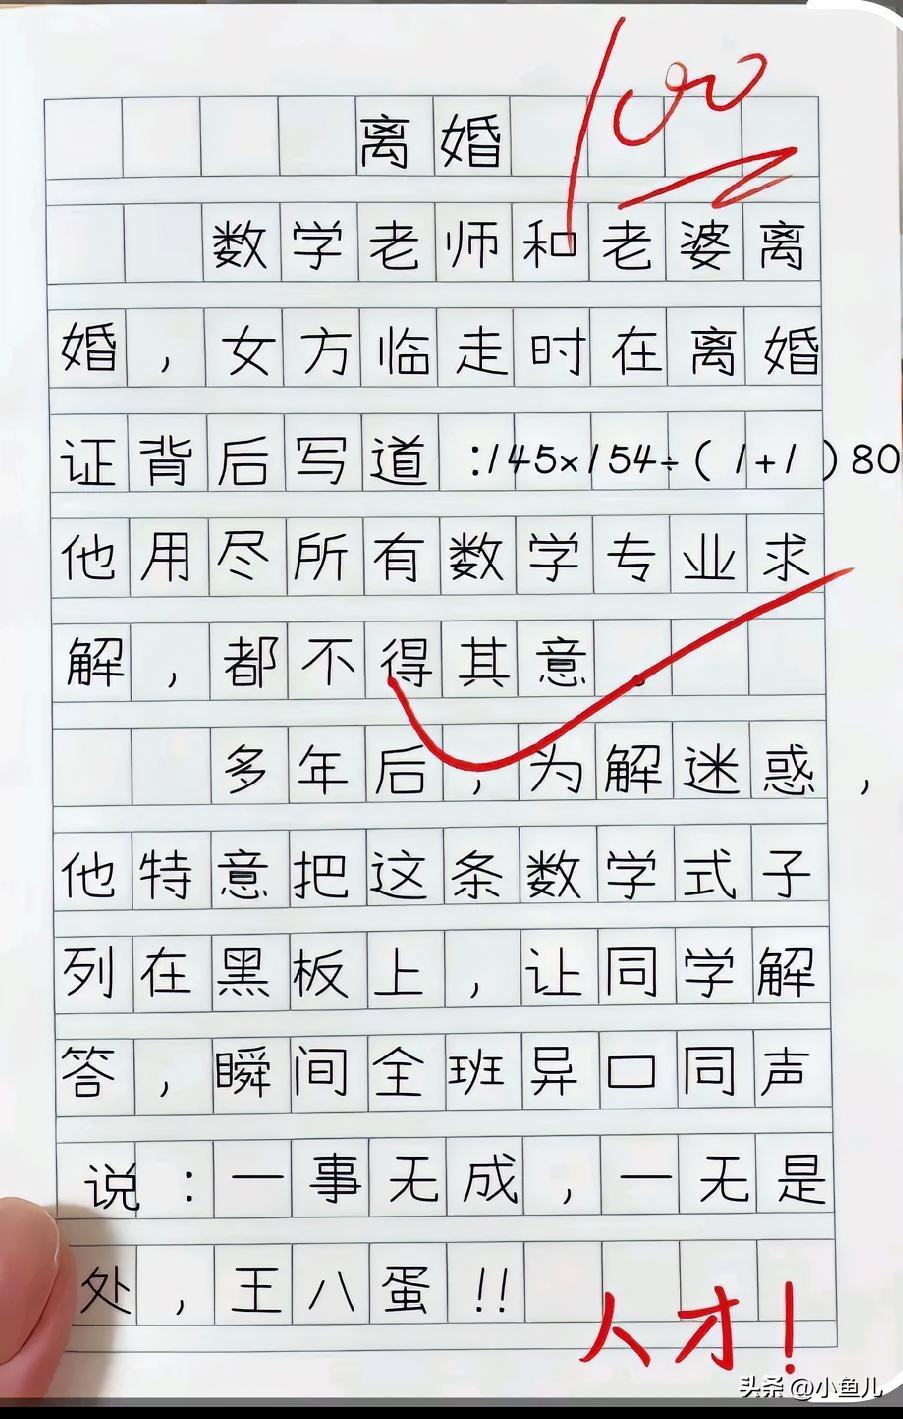 100
离婚
数学老师和老婆离
婚，女方临走时在离婚
证背后写道:145×154÷(1+1)80
他用尽所有数学专业求
解，都不得其意。
多年后，为解迷惑，
他特意把这条数学式子
列在黑板上，让同学解
答，瞬间全班异口同声
说：一事无成，一无是
处，王八蛋!!
人才!
头条 @小鱼儿